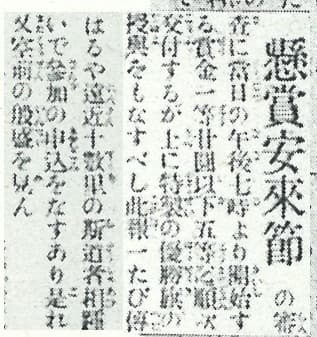 懸賞安來節の審
査に當日の午後七時より開始す
る賞金一等廿圓以下五等迄順次
交付するが上に特製の優勝旗の
授與をもなすべし此報一たび傳
はるや遠近十數里の斯道者相踵
いで參加の申込をなすあり是れ
又空前の般盛を見ん